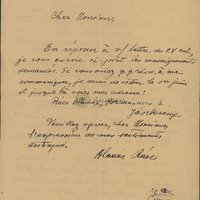 Cher Monsieur,
En réponse à v/ lettre du 24 crt,
je vous envoie ci-joint les renseignements
demandés. Si vous avez q.q. chose à me
communiquer, je serai de retour le 1er juin
et jusque là voici mon adresse:
Rács
Jászberény
Veuillez agréer, cher Monsieur,
l'expression de mes sentiments
distingués.